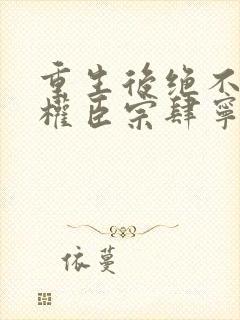 重生後绝不
權臣宗肆寧
依蔓